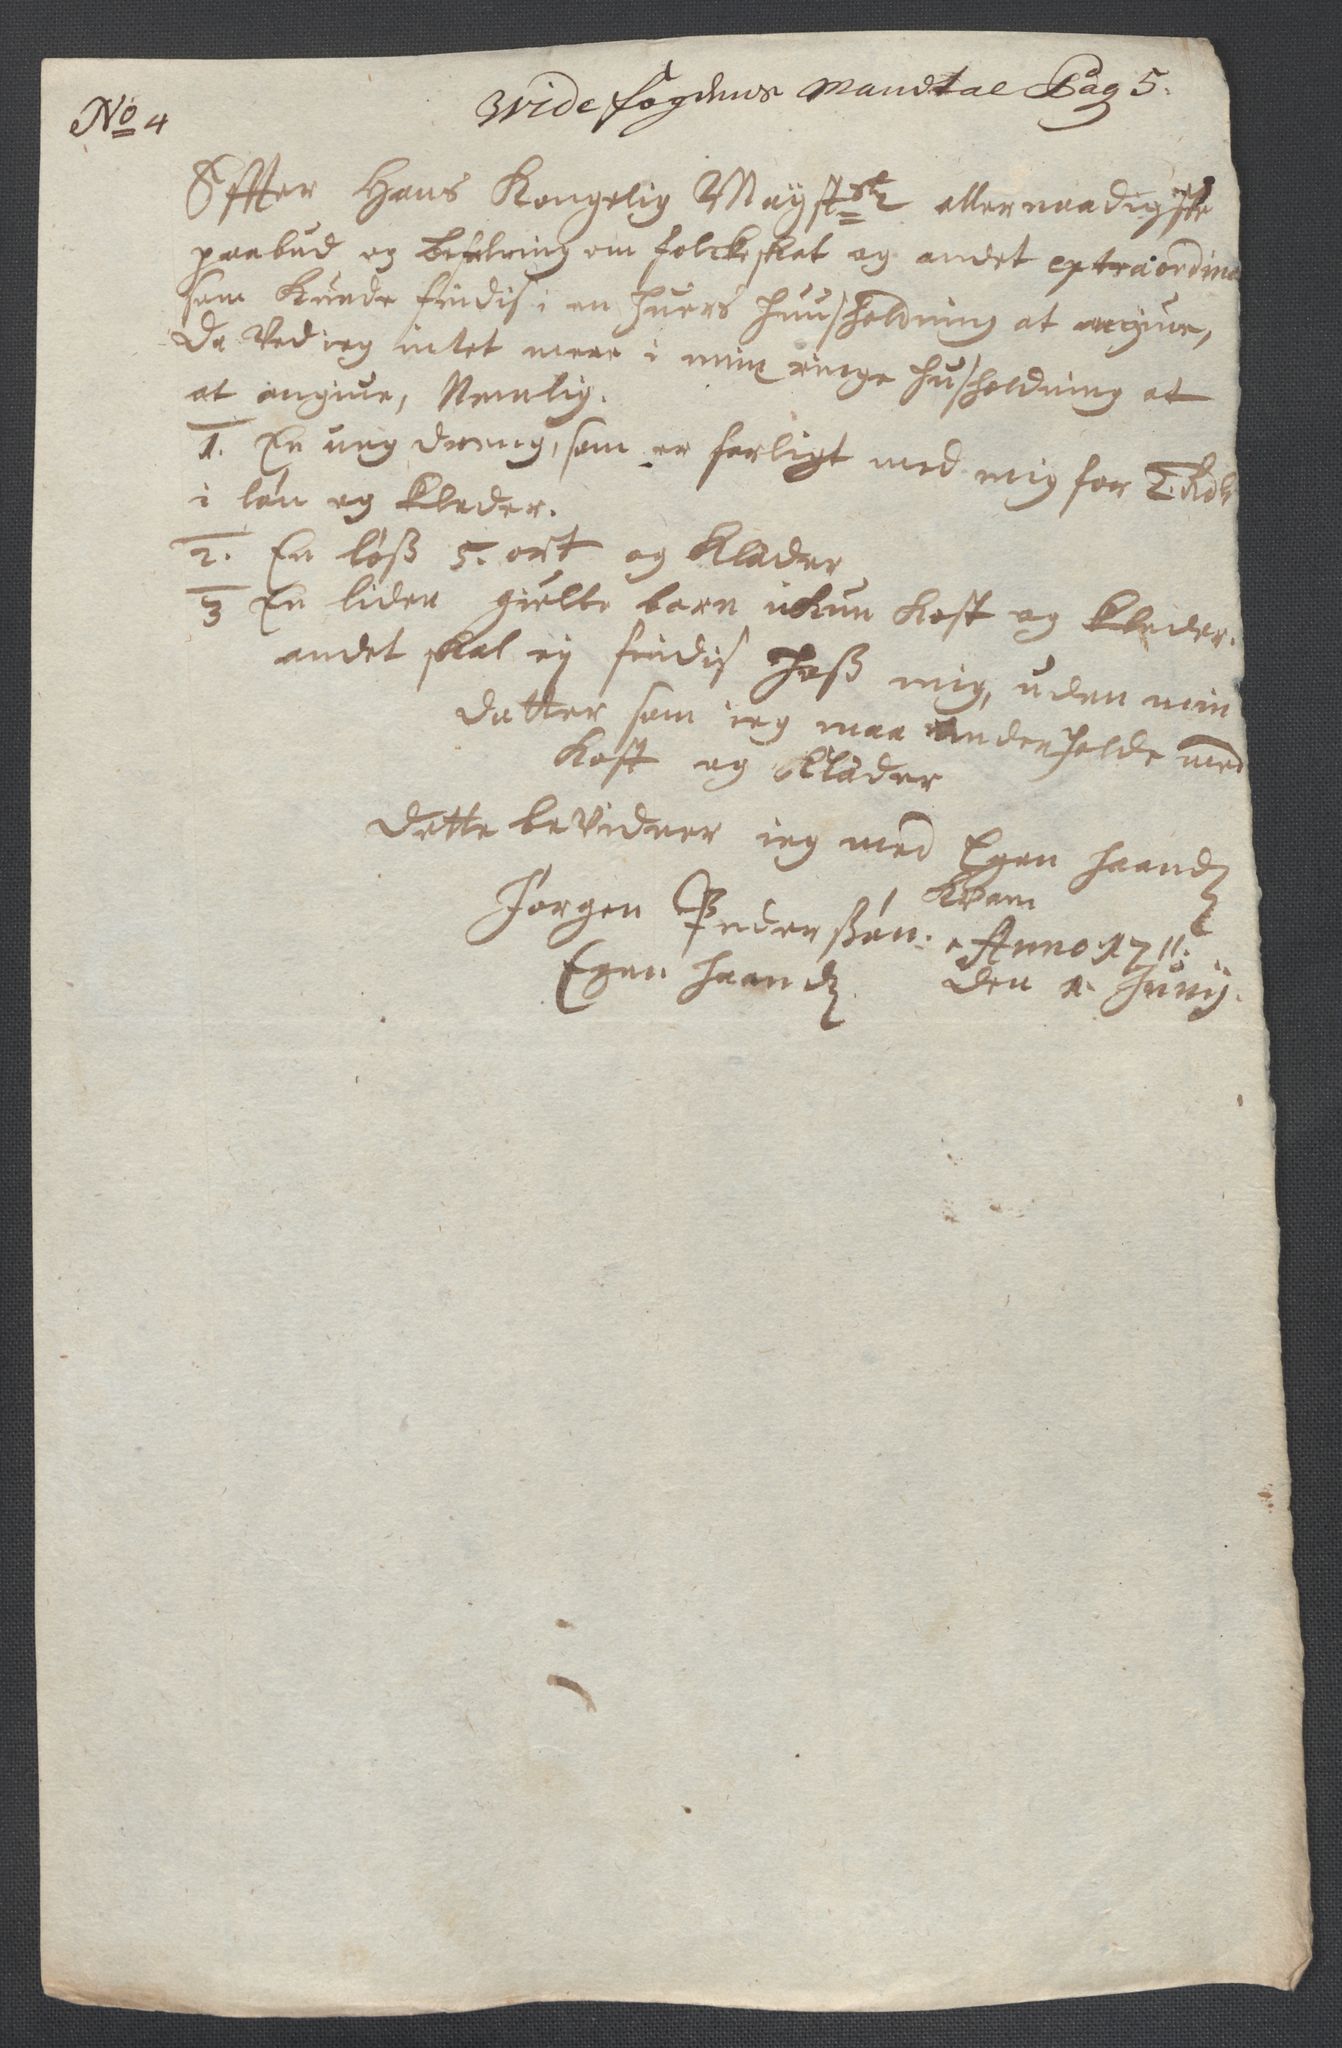 No 4
vide fogdens Mandtal Pag 5.
Effter Hans Kongelig Mayst: allernaadigste
paabud og befalning om folckeskat og andet extraordina
som Kunde findis i en huers huusholdning at angiue,
Da Ved ieg intet mere i min ringe husholdning at
at angiue, Nemlig.
1. En ung dreng, som er ferligt med mig for 2 Rdl
i løn og Kleder.
2. En 5. ort og Klæder
3 En liden barn Kost og Kleder.
andet skal ej findis hoß mig, uden min
datter som ieg maa underholde med
Kost og Klæder
Dette beVidner ieg med Egen haand
Jørgen Pederßøn. Kvam
Anno 1711.
Egen haand den 1. Junij.